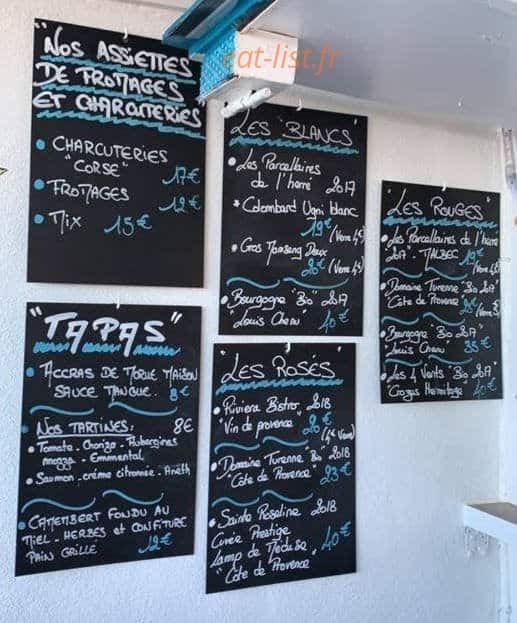 eat-list.fr
"NOS ASSIETTES
DE FROMAGES
ET CHARCUTERIES"
• CHARCUTERIES
"CORSE" 17€
• FROMAGES 12€
• MIX 15€
"LES BLANCS
• Les Parcellaires
de l'herré 2017
* Colombard Ugni blanc
19€ (Verre 4€)
* Gros Manseng Doux
20€ (Verre 4€)
• Bourgogne "Bio" 2017
"Louis Chenu" 40€
"LES ROUGES"
• Les Parcellaires de l'herré
2017 - MALBEC 19€
(Verre 4€)
• Domaine Turenne "Bio" 2018
"Côte de Provence"
• Bourgogne "Bio" 2017
"Louis Chenu" 35€
• Les 4 Vents "Bio" 2017
"Crozes Hermitage" 40€
"TAPAS"
• ACCRAS DE MORUE MAISON
SAUCE MANGUE. 8€
• NOS TARTINES: 8€
• Tomate - Chorizo - Aubergines
mozza - Emmental
• Saumon - crème citronnée - Aneth
• CAMEMBERT FONDU AU
MIEL - HERBES et CONFITURE
PAIN GRILLÉ 12€
"LES ROSÉS
• Riviera Bistrot 2018
"Vin de provence" 20€
(4€ Verre)
• Domaine Turenne "Bio" 2018
"Côte de Provence" 23€
• Sainte Roseline 2018
Cuvée Prestige
Lampe de Méduse 40€
"Côte de Provence"